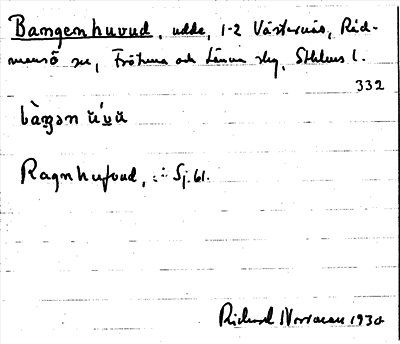 Bamgenhuvud, udde, 1-2 Västernäs, Rid-
mansö sn, Frötuna och Länna skg, Sthlms l.
332
Ragnhufvud, Sj. 61.
Richard 1930